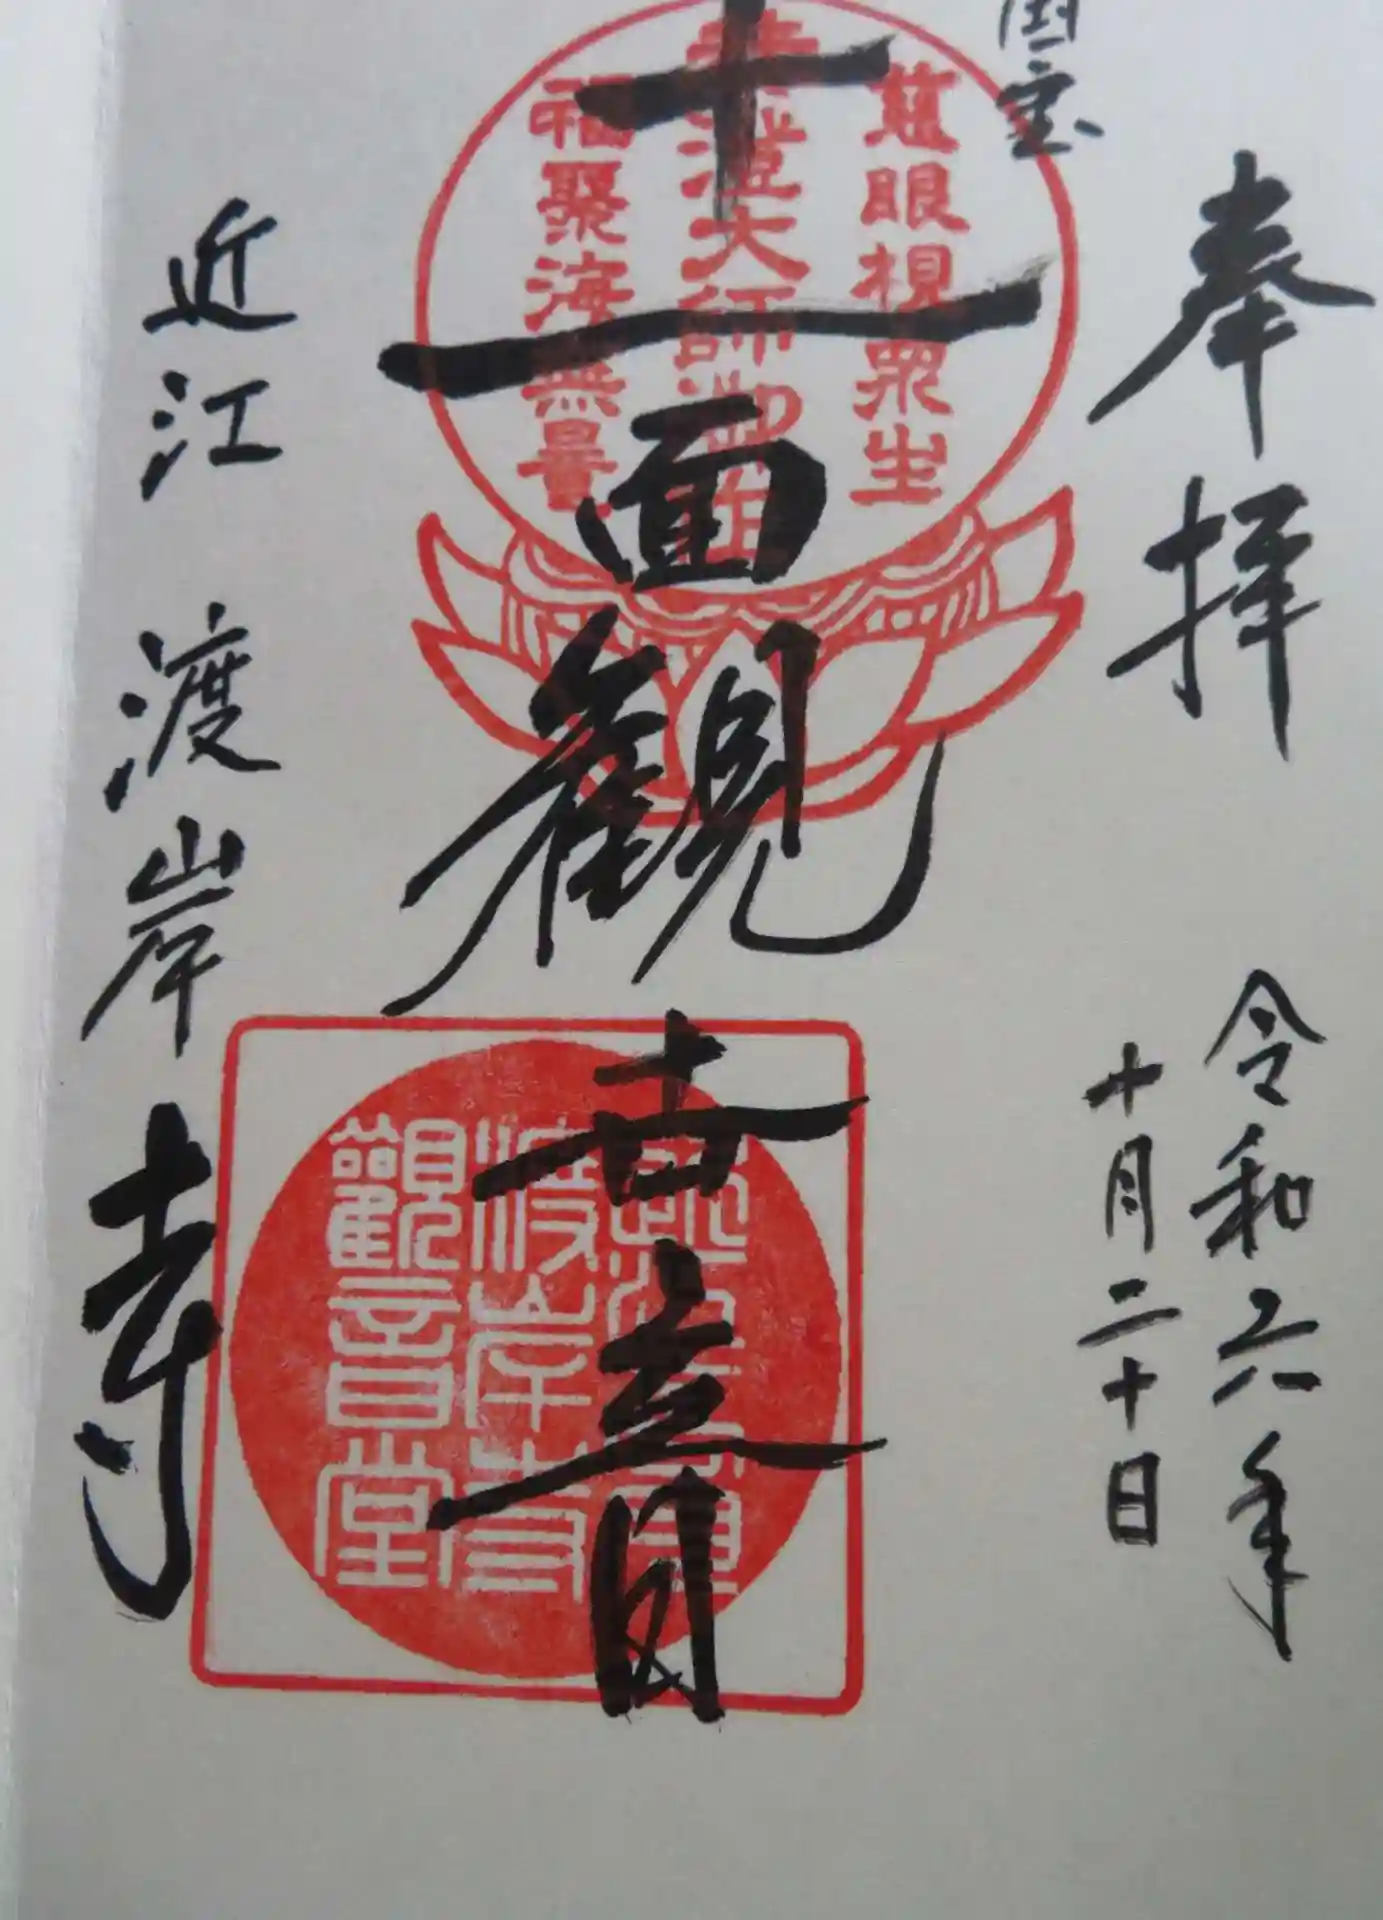 奉拝
令和六年
十月二十日
国宝
慈眼視衆生
泰澄大師御作
福聚海無量
十一面観世音
渡岸寺
觀音堂
近江 渡岸寺